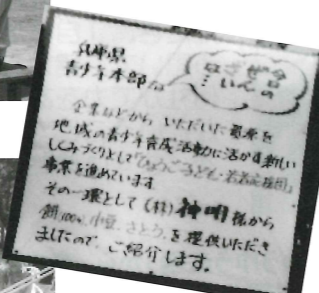 今日の
ぜんざいは…
兵庫県
青少年本部が
企業などから いただいた 資源を
地域の青少年育成活動に活かす新しい
しくみづくりとして「ひょうご子ども・若者応援団」
事業を進めています
その一環として (株) 神明 様から
餅100kg、小豆、さとう、を提供いただき
ましたので、ご紹介します。